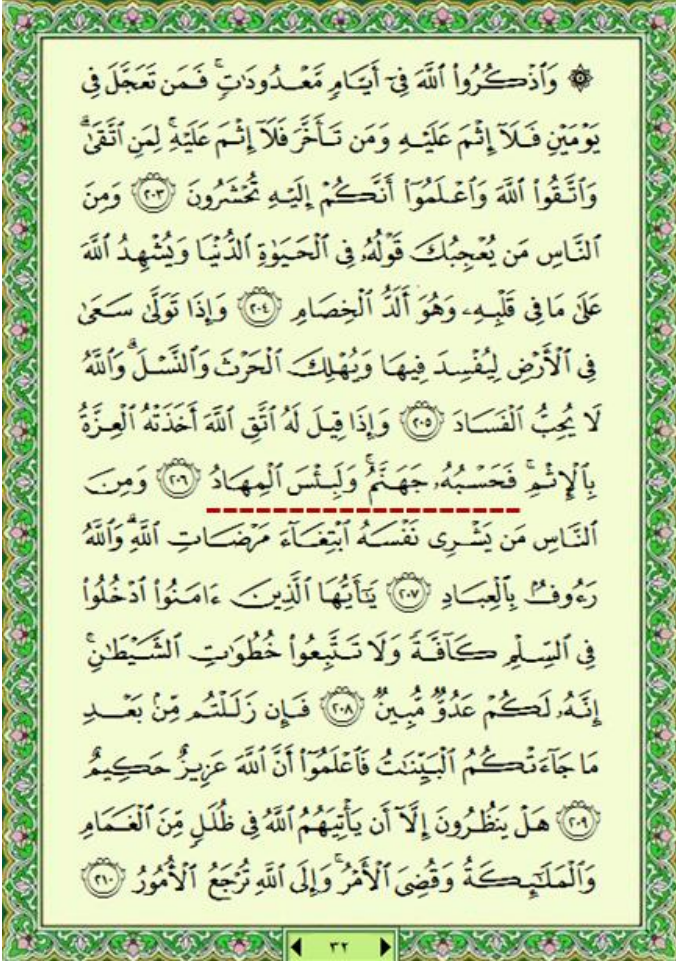 ۞ وَٱذْكُرُوا۟ ٱللَّهَ فِىٓ أَيَّامٍ مَّعْدُودَٰتٍ ۚ فَمَن تَعَجَّلَ فِى
يَوْمَيْنِ فَلَآ إِثْمَ عَلَيْهِ وَمَن تَأَخَّرَ فَلَآ إِثْمَ عَلَيْهِ ۚ لِمَنِ ٱتَّقَىٰ ۗ
وَٱتَّقُوا۟ ٱللَّهَ وَٱعْلَمُوٓا۟ أَنَّكُمْ إِلَيْهِ تُحْشَرُونَ ﴿٢٠٣﴾ وَمِنَ
ٱلنَّاسِ مَن يُعْجِبُكَ قَوْلُهُۥ فِى ٱلْحَيَوٰةِ ٱلدُّنْيَا وَيُشْهِدُ ٱللَّهَ
عَلَىٰ مَا فِى قَلْبِهِۦ وَهُوَ أَلَدُّ ٱلْخِصَامِ ﴿٢٠٤﴾ وَإِذَا تَوَلَّىٰ سَعَىٰ
فِى ٱلْأَرْضِ لِيُفْسِدَ فِيهَا وَيُهْلِكَ ٱلْحَرْثَ وَٱلنَّسْلَ ۗ وَٱللَّهُ
لَا يُحِبُّ ٱلْفَسَادَ ﴿٢٠٥﴾ وَإِذَا قِيلَ لَهُ ٱتَّقِ ٱللَّهَ أَخَذَتْهُ ٱلْعِزَّةُ
بِٱلْإِثْمِ ۚ فَحَسْبُهُۥ جَهَنَّمُ ۚ وَلَبِئْسَ ٱلْمِهَادُ ﴿٢٠٦﴾ وَمِنَ
ٱلنَّاسِ مَن يَشْرِى نَفْسَهُ ٱبْتِغَآءَ مَرْضَاتِ ٱللَّهِ ۗ وَٱللَّهُ
رَءُوفٌۢ بِٱلْعِبَادِ ﴿٢٠٧﴾ يَٰٓأَيُّهَا ٱلَّذِينَ ءَامَنُوا۟ ٱدْخُلُوا۟
فِى ٱلسِّلْمِ كَآفَّةً وَلَا تَتَّبِعُوا۟ خُطُوَٰتِ ٱلشَّيْطَٰنِ ۚ
إِنَّهُۥ لَكُمْ عَدُوٌّ مُّبِينٌ ﴿٢٠٨﴾ فَإِن زَلَلْتُم مِّنۢ بَعْدِ
مَا جَآءَتْكُمُ ٱلْبَيِّنَٰتُ فَٱعْلَمُوٓا۟ أَنَّ ٱللَّهَ عَزِيزٌ حَكِيمٌ
﴿٢٠٩﴾ هَلْ يَنظُرُونَ إِلَّآ أَن يَأْتِيَهُمُ ٱللَّهُ فِى ظُلَلٍ مِّنَ ٱلْغَمَامِ
وَٱلْمَلَٰٓئِكَةُ وَقُضِىَ ٱلْأَمْرُ ۚ وَإِلَى ٱللَّهِ تُرْجَعُ ٱلْأُمُورُ ﴿٢١٠﴾
٣٢